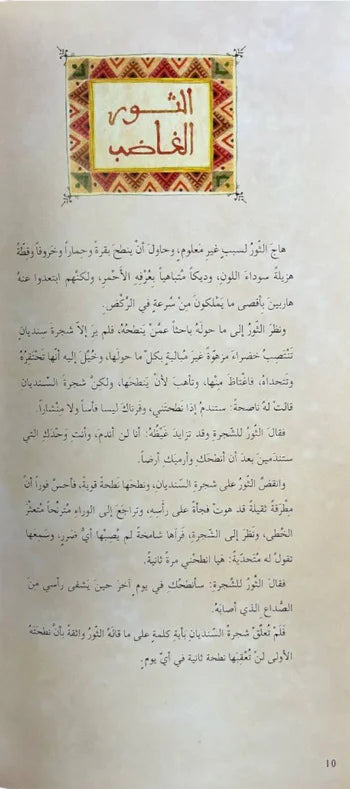 الثور
الغاضب
هاجَ الثّورُ لسببٍ غيرِ مَعلومٍ، وحاولَ أنْ ينطحَ بقرةً وحِماراً وخَروفاً وقطّةً
هزيلةً سوداءَ اللونِ، وديكاً مُتباهياً بعُرْفِهِ الأَحْمرِ، ولكنّهم ابتعدوا عنهُ
هاربينَ بأقصى ما يَملكونَ مِنْ سُرعةٍ في الرّكْضِ.
ونظرَ الثّورُ إلى ما حولَهُ باحثاً عمّنْ يَنطحُهُ، فلم يرَ إلاّ شجرةَ سِنديانٍ
تَنْتَصِبُ خَضراءَ مزهوّةً غيرَ مُباليةٍ بكلّ ما حولَها، وخُيّلَ إليه أنّها تَحْتَقِرُهُ
وتَتحداهُ، فاغْتاظَ مِنْها، وتأهبَ لأنْ يَنطحَها، ولكنّ شجرةَ السّنديانِ
قالتْ لهُ ناصحةً: ستندمُ إذا نطحْتَني، وقرناكَ ليسا فأساً ولا مِنْشاراً.
فقالَ الثّورُ للشّجرةِ وقد تزايدَ غَيْظُهُ: أنا لن أندمَ، وأنتِ وَحْدَكِ التي
ستندمينَ بعدَ أن أنطحَكِ وأرميَكِ أرضاً.
وانقضّ الثّورُ على شجرةِ السّنديانِ، ونطحَها نَطحةً قويةً، فأحسّ فوراً أنّ
مِطرَقةً ثقيلةً قد هوتْ فجأةً على رأسِهِ، وتراجعَ إلى الوراءِ مُترنّحاً مُتعثّرَ
الخُطى، ونَظرَ إلى الشّجرةِ، فرَآها شامخةً لم يُصِبْها أيُّ ضَررٍ، وسَمِعها
تقولُ له مُتَحدّيةً: هيا انطحْني مرةً ثانيةً.
فقالَ الثّورُ للشّجرةِ: سأنطحُكِ في يومٍ آخرَ حينَ يَشفى رأسي مِنَ
الصُّداعِ الذي أصابَهُ.
فَلَمْ تُعلّقْ شجرةُ السّنديانِ بأيةِ كلمةٍ على ما قالَهُ الثّورُ واثقةً بأنّ نطحتَهُ
الأولى لنْ تُعْقِبَها نطحة ثانية في أيّ يومٍ.
10